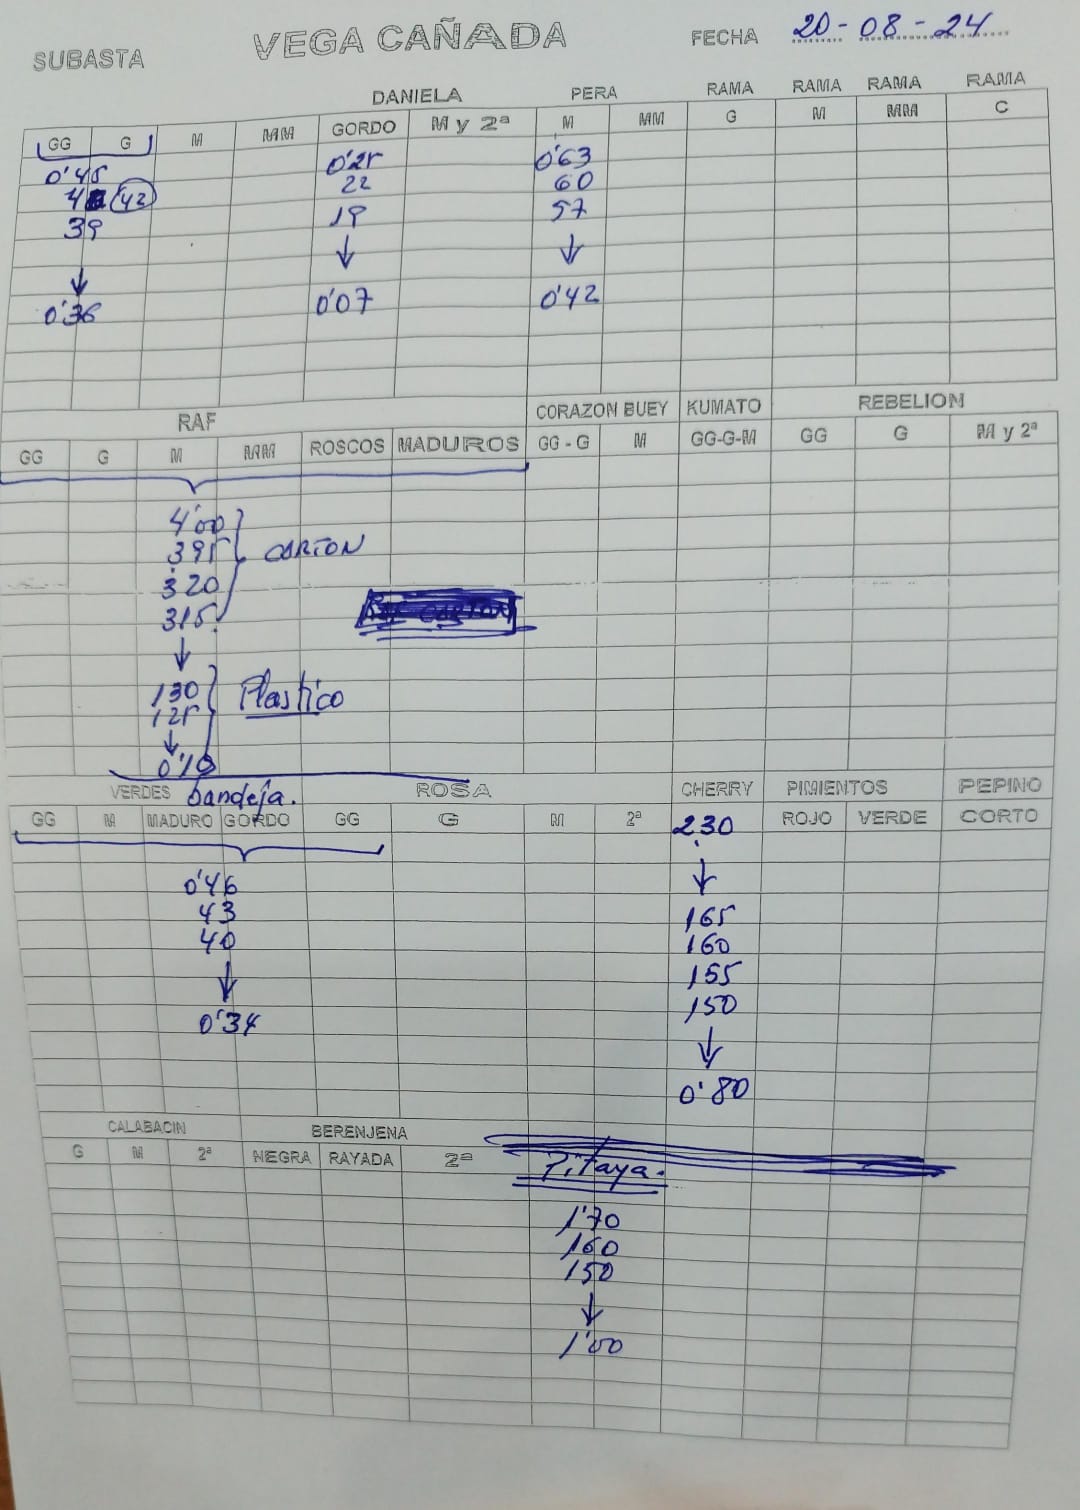 SUBASTA VEGA CAÑADA FECHA 20-08-24
DANIELA PERA RAMA RAMA RAMA RAMA
GG G M MM GORDO M y 2ª M MM G M MM C
0'45 0'25 0'63
42 22 60
39 19 57
↓ ↓ ↓
0'36 0'07 0'42
RAF CORAZON BUEY KUMATO REBELION
GG G M MM ROSCOS MADUROS GG - G M GG-G-M GG G M y 2ª
4'00
395 CARTON
320
315
↓
130 Plastico
125
↓
0'10
VERDES bandeja. ROSA CHERRY PIMIENTOS PEPINO
GG M MADURO GORDO GG G M 2ª 230 ROJO VERDE CORTO
0'46 ↓
43 165
40 160
↓ 155
0'34 150
↓
0'80
CALABACIN BERENJENA
G M 2ª NEGRA RAYADA 2ª Pitaya.
1'70
160
150
↓
1'00